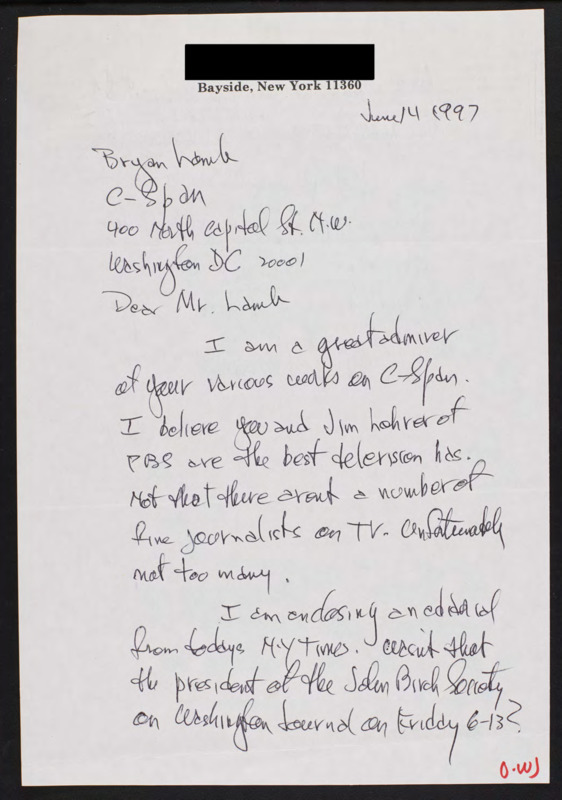 Bayside, New York 11360
June 14 1997
Bryan Lamb
C-Span
400 North Capitol St. N.W.
Washington DC 20001
Dear Mr. Lamb
I am a great admirer
of your various works on C-Span.
I believe you and Jim Lehrer of
PBS are the best television has.
Not that there arent a number of
fine journalists on TV. Unfortunately
not too many.
I am enclosing an editorial
from todays N.Y Times. Wasnt that
the president of the John Birch Society
on Washington Journal on Friday 6-13?
O-WJ